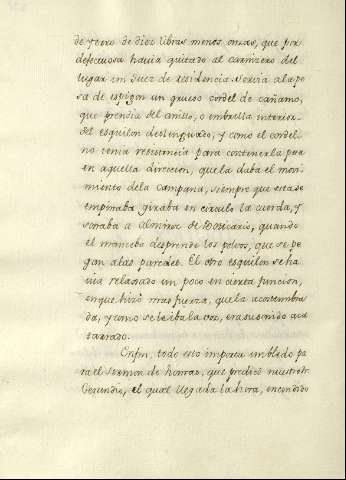 de yerro de diez libras menos onzas, que por
defectuosa havia quitado al carnizero del
lugar un Juez de residencia. Servia ala pe
sa de espigon un grueso cordel de cañamo,
que prendia del anillo, o embrilla interior
del esquilon deslenguado, y como el cordel
no tenia resistencia para contenerla pesa
en aquella direccion, quela daba el movi
miento dela Campana, siempre que esta se
empinaba giraba en circulo la cuerda, y
sonaba a
el mancebo desprende los polvos, que se pe
gan alas paredes. El otro esquilon se ha
via relaxado un poco en cierta funcion,
enque hizo mas fuerza, quela acostumbra
da, y como se le iba la voz, era su sonido aca
tarrado.
Enfin, todo esto importa un bledo pa
ra el Sermon de honras, que predicó nuestro fr.
Gerundio, el qual llegada la hora, encendido